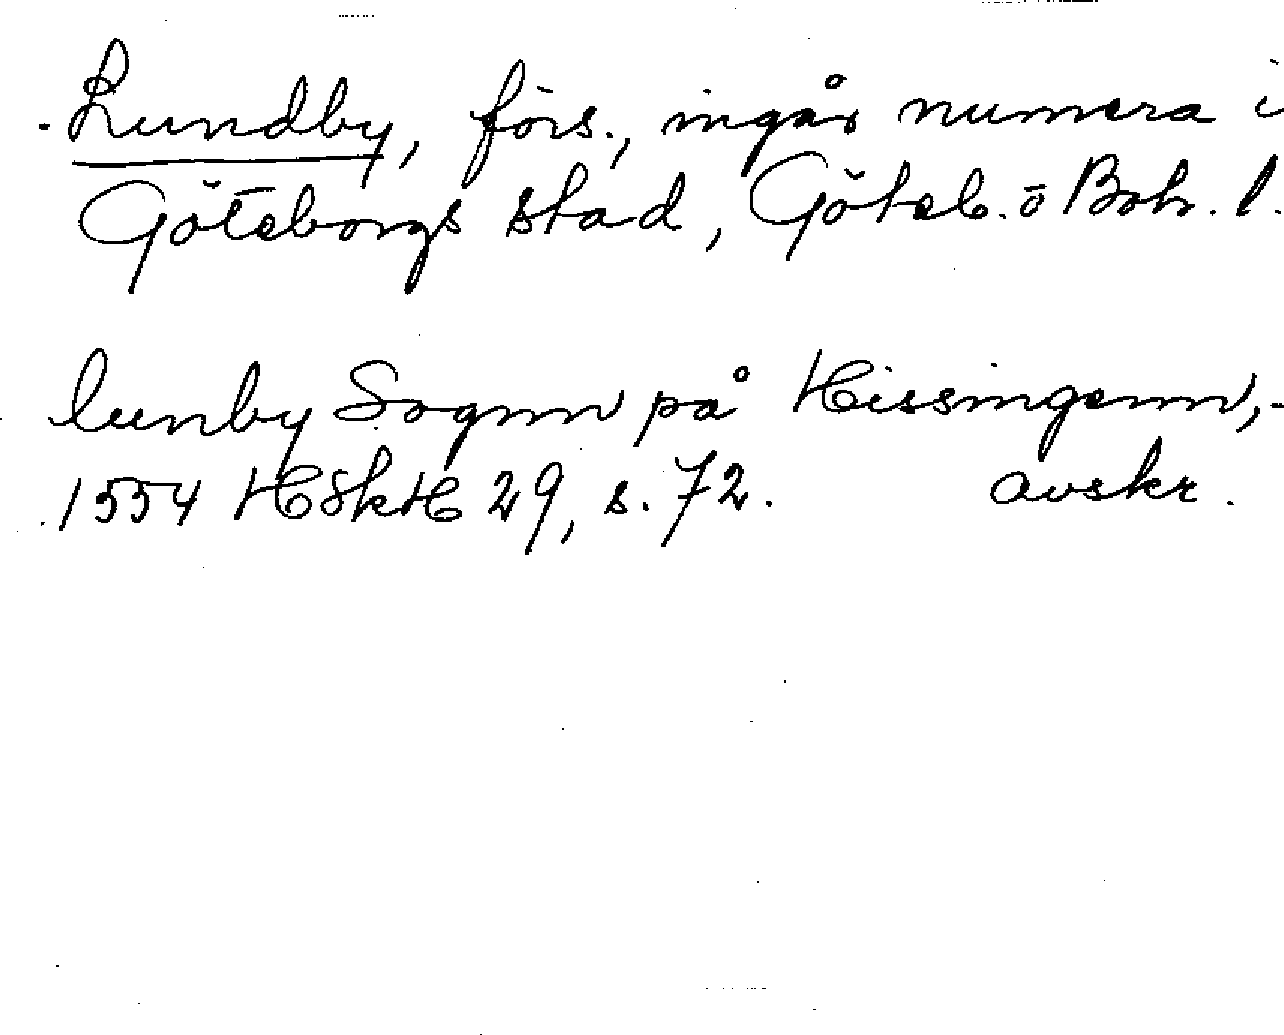 Lundby, förs., ingår numera i
Göteborgs stad, Göteb. ö Boh. l.
lunby Sognn på Hissingenn,-
1554 HSkH 29, s. 72. avskr.